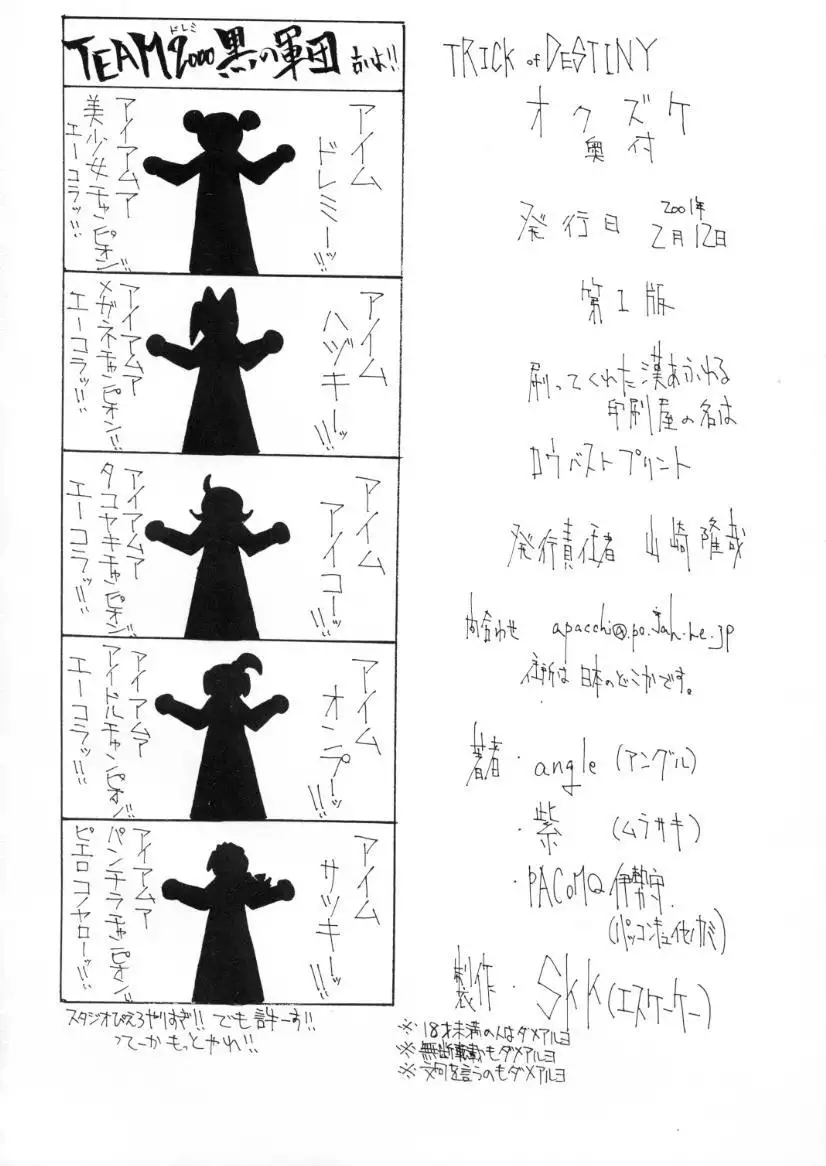 ドレミ
TEAM2000 黒の軍団
アイム
ドレミーッ!!
アイアムア
美少女チャンピオン!!
エーコラッ!!!
アイム
ハヅキーッ!!!
アイアムア
メガネチャンピオン!!
エーコラッ!!!
アイム
アイコーッ!!!
アイアムア
タコヤキチャンピオン!!
エーコラッ!!!
アイム
オンプーッ!!!
アイアムア
アイドルチャンピオン!!
エーコラッ!!!
アイム
サツキーッ!!!
アイアムア
パンチラチャンピオン!!
ピエロコノヤローッ!!!
スタジオぴえろやりすぎ!! でも許ーす!!
つてーかもっとやれ!!
TRICK of DESTINY
オクズケ
奥付
発行日 2001年
2月12日
第1版
刷ってくれた漢あふれる
印刷屋の名は
ロウベストプリント
発行責任者 山崎隆哉
問合わせ apacchi@po.jah.ne.jp
住所は日本のどこかです。
著者・angle(アングル)
・紫 (ムラサキ)
・PACoMQ伊勢守
製作・SKK(エスケーケー)
※18才未満の人はダメアルヨ
※無断転載もダメアルヨ
※文句を言うのもダメアルヨ